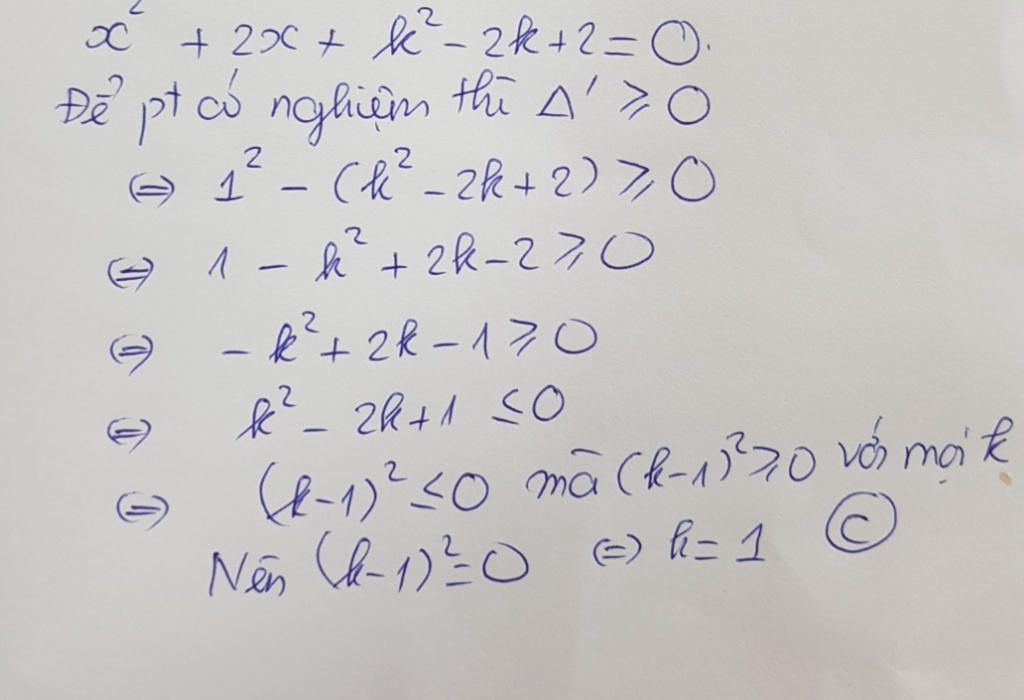 x² + 2x + k² - 2k + 2 = 0.
Để pt có nghiệm thì Δ' ≥ 0
⇔ 1² - (k² - 2k + 2) ≥ 0
⇔ 1 - k² + 2k - 2 ≥ 0
⇔ - k² + 2k - 1 ≥ 0
⇔ k² - 2k + 1 ≤ 0
⇔ (k-1)² ≤ 0 mà (k-1)² ≥ 0 với mọi k
Nên (k-1)² = 0 ⇔ k = 1 Ⓒ